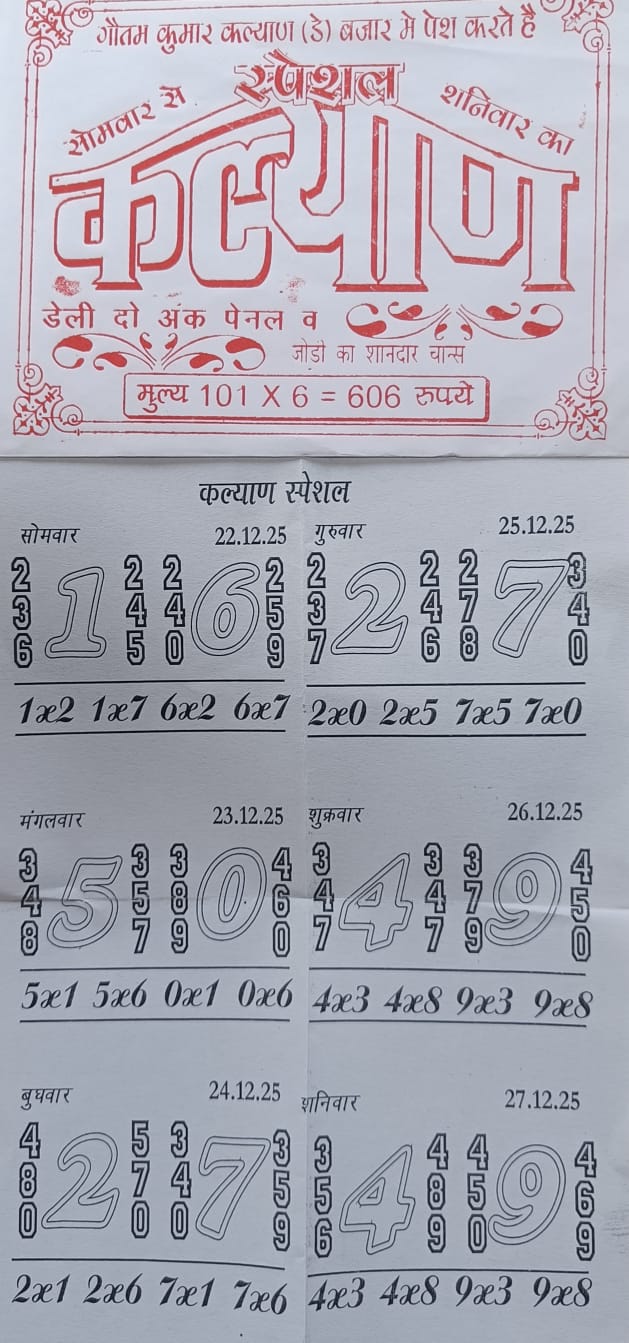 गौतम कुमार कल्याण (डे) बजार मे पेश करते है
सोमवार से स्पेशल शनिवार का
कल्याण
डेली दो अंक पेनल व
जोडी का शानदार चान्स
मुल्य 101 X 6 = 606 रुपये
कल्याण स्पेशल
सोमवार 22.12.25
236 1 245 240 6 259
1x2 1x7 6x2 6x7
गुरुवार 25.12.25
237 2 246 278 7 340
2x0 2x5 7x5 7x0
मंगलवार 23.12.25
348 5 357 389 0 460
5x1 5x6 0x1 0x6
शुक्रवार 26.12.25
347 4 347 379 9 450
4x3 4x8 9x3 9x8
बुधवार 24.12.25
480 2 570 340 7 359
2x1 2x6 7x1 7x6
शनिवार 27.12.25
356 4 489 450 9 469
4x3 4x8 9x3 9x8